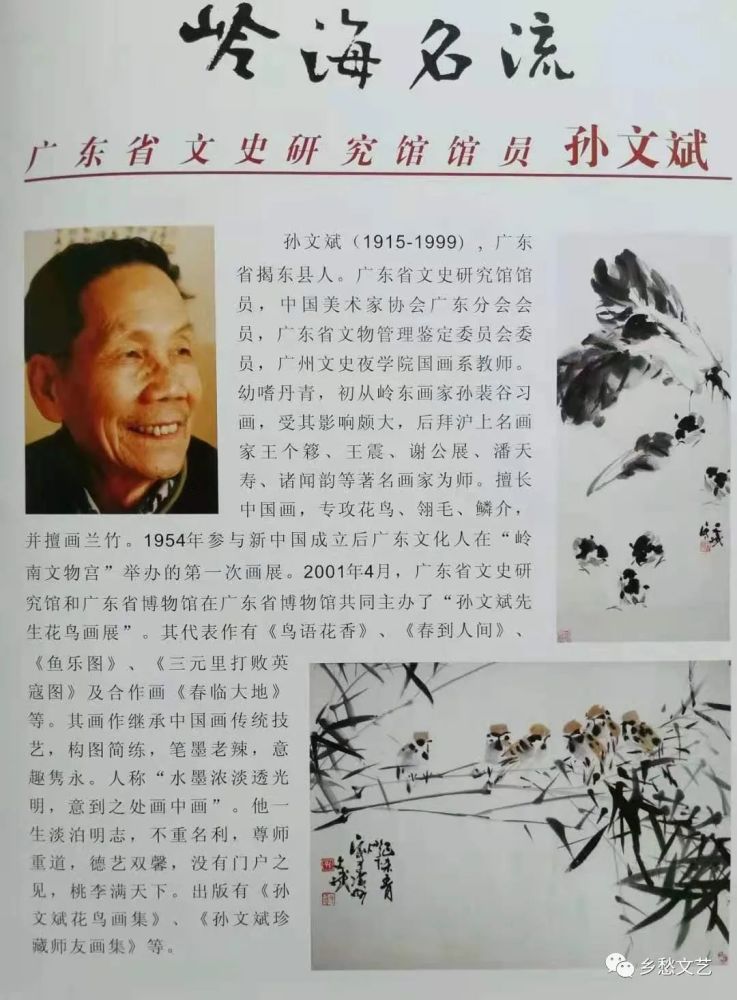 岭海名流
广东省文史研究馆馆员 孙文斌
孙文斌（1915-1999），广东
省揭东县人。广东省文史研究馆馆
员，中国美术家协会广东分会会
员，广东省文物管理鉴定委员会委
员，广州文史夜学院国画系教师。
幼嗜丹青，初从岭东画家孙裴谷习
画，受其影响颇大，后拜沪上名画
家王个簃、王震、谢公展、潘天
寿、诸闻韵等著名画家为师。擅长
中国画，专攻花鸟、翎毛、鳞介，
并擅画兰竹。1954年参与新中国成立后广东文化人在“岭
南文物宫”举办的第一次画展。2001年4月，广东省文史研
究馆和广东省博物馆在广东省博物馆共同主办了“孙文斌先
生花鸟画展”。其代表作有《鸟语花香》、《春到人间》、
《鱼乐图》、《三元里打败英
寇图》及合作画《春临大地》
等。其画作继承中国画传统技
艺，构图简练，笔墨老辣，意
趣隽永。人称“水墨浓淡透光
明，意到之处画中画”。他一
生淡泊明志，不重名利，尊师
重道，德艺双馨，没有门户之
见，桃李满天下。出版有《孙
文斌花鸟画集》、《孙文斌珍
藏师友画集》等。
乡愁文艺